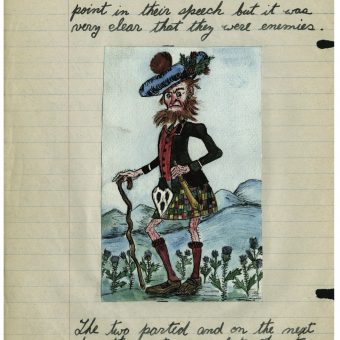 point in their speech but it was
very clear that they were enemies.
The two parted and on the next